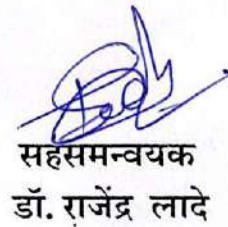 सहसमन्वयक
डॉ. राजेंद्र लादे